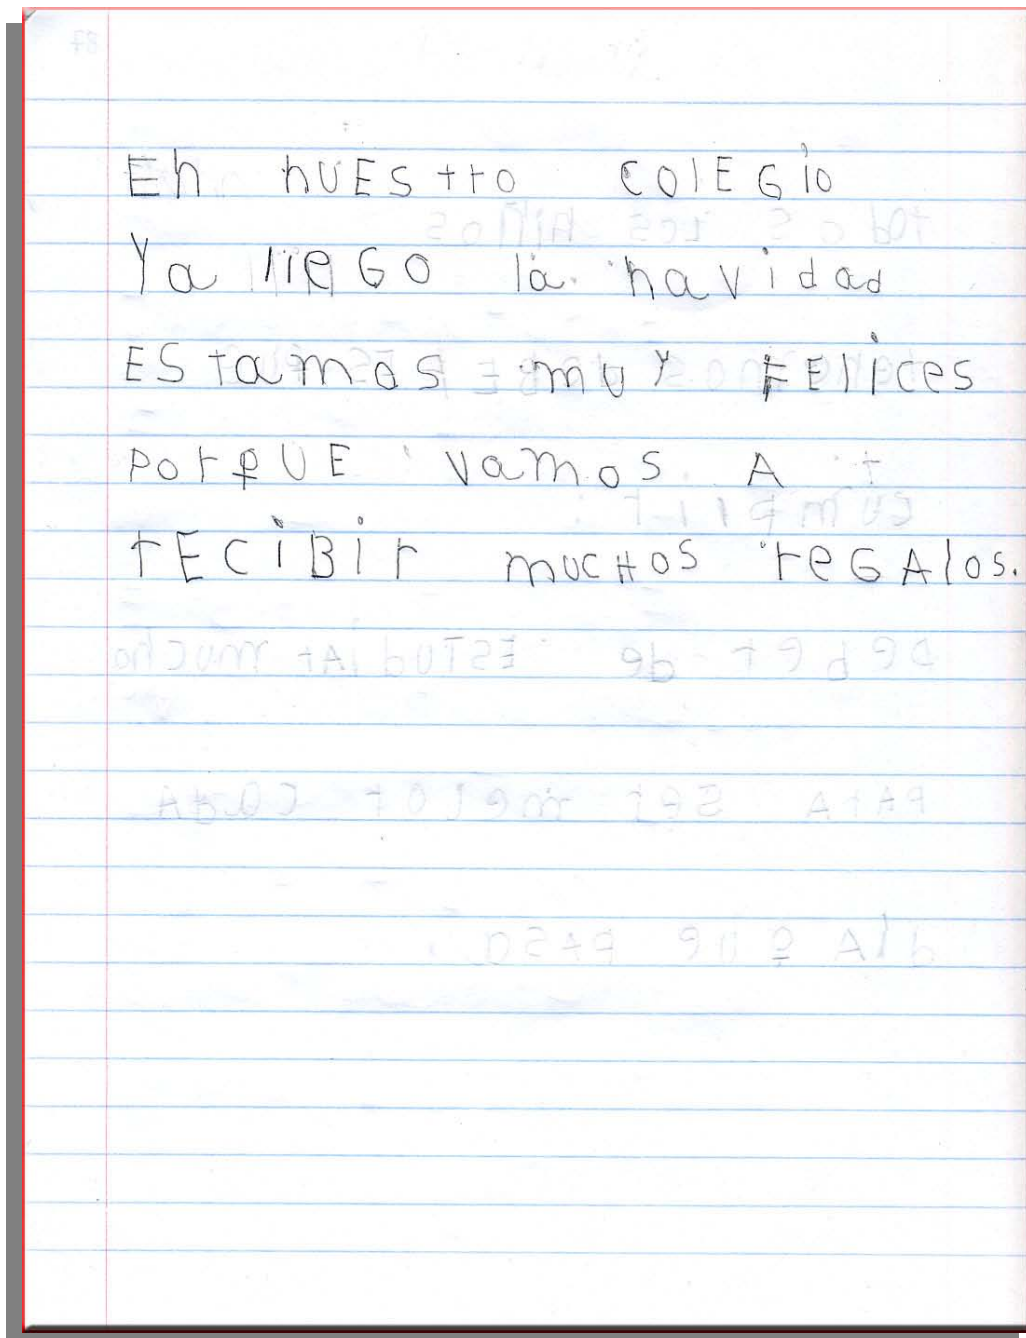 En nUEStro COlEGio
Ya lleGO la navidad
EStamos muy FElices
PorqUE vamos A
rECiBir mucHos reGAlos.